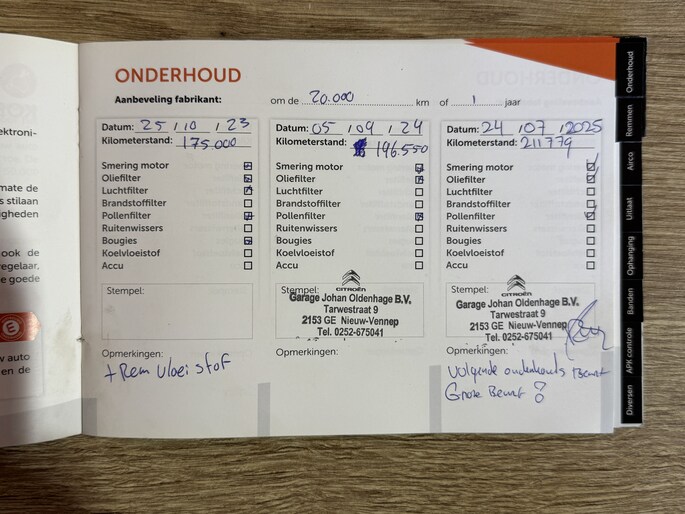 ektroni-
mate de
s stilaan
igheden
ook de
regelaar,
te goede
w auto
en de
ONDERHOUD
Aanbeveling fabrikant: om de 20.000 km of 1 jaar
Datum: 25 / 10 / 23
Kilometerstand: 175000
Smering motor
Oliefilter
Luchtfilter
Brandstoffilter
Pollenfilter
Ruitenwissers
Bougies
Koelvloeistof
Accu
Stempel:
Opmerkingen:
+ Rem vloeistof
Datum: 05 / 09 / 24
Kilometerstand: 196.550
Smering motor
Oliefilter
Luchtfilter
Brandstoffilter
Pollenfilter
Ruitenwissers
Bougies
Koelvloeistof
Accu
Stempel:
CITROËN
Garage Johan Oldenhage B.V.
Tarwestraat 9
2153 GE Nieuw-Vennep
Tel. 0252-675041
Opmerkingen:
Datum: 24 / 07 / 2025
Kilometerstand: 211779
Smering motor
Oliefilter
Luchtfilter
Brandstoffilter
Pollenfilter
Ruitenwissers
Bougies
Koelvloeistof
Accu
Stempel:
CITROËN
Garage Johan Oldenhage B.V.
Tarwestraat 9
2153 GE Nieuw-Vennep
Tel. 0252-675041
Opmerkingen:
Volgende onderhouds Beurt
Grote Beurt
Onderhoud
Remmen
Airco
Uitlaat
Ophanging
Banden
APK controle
Diversen